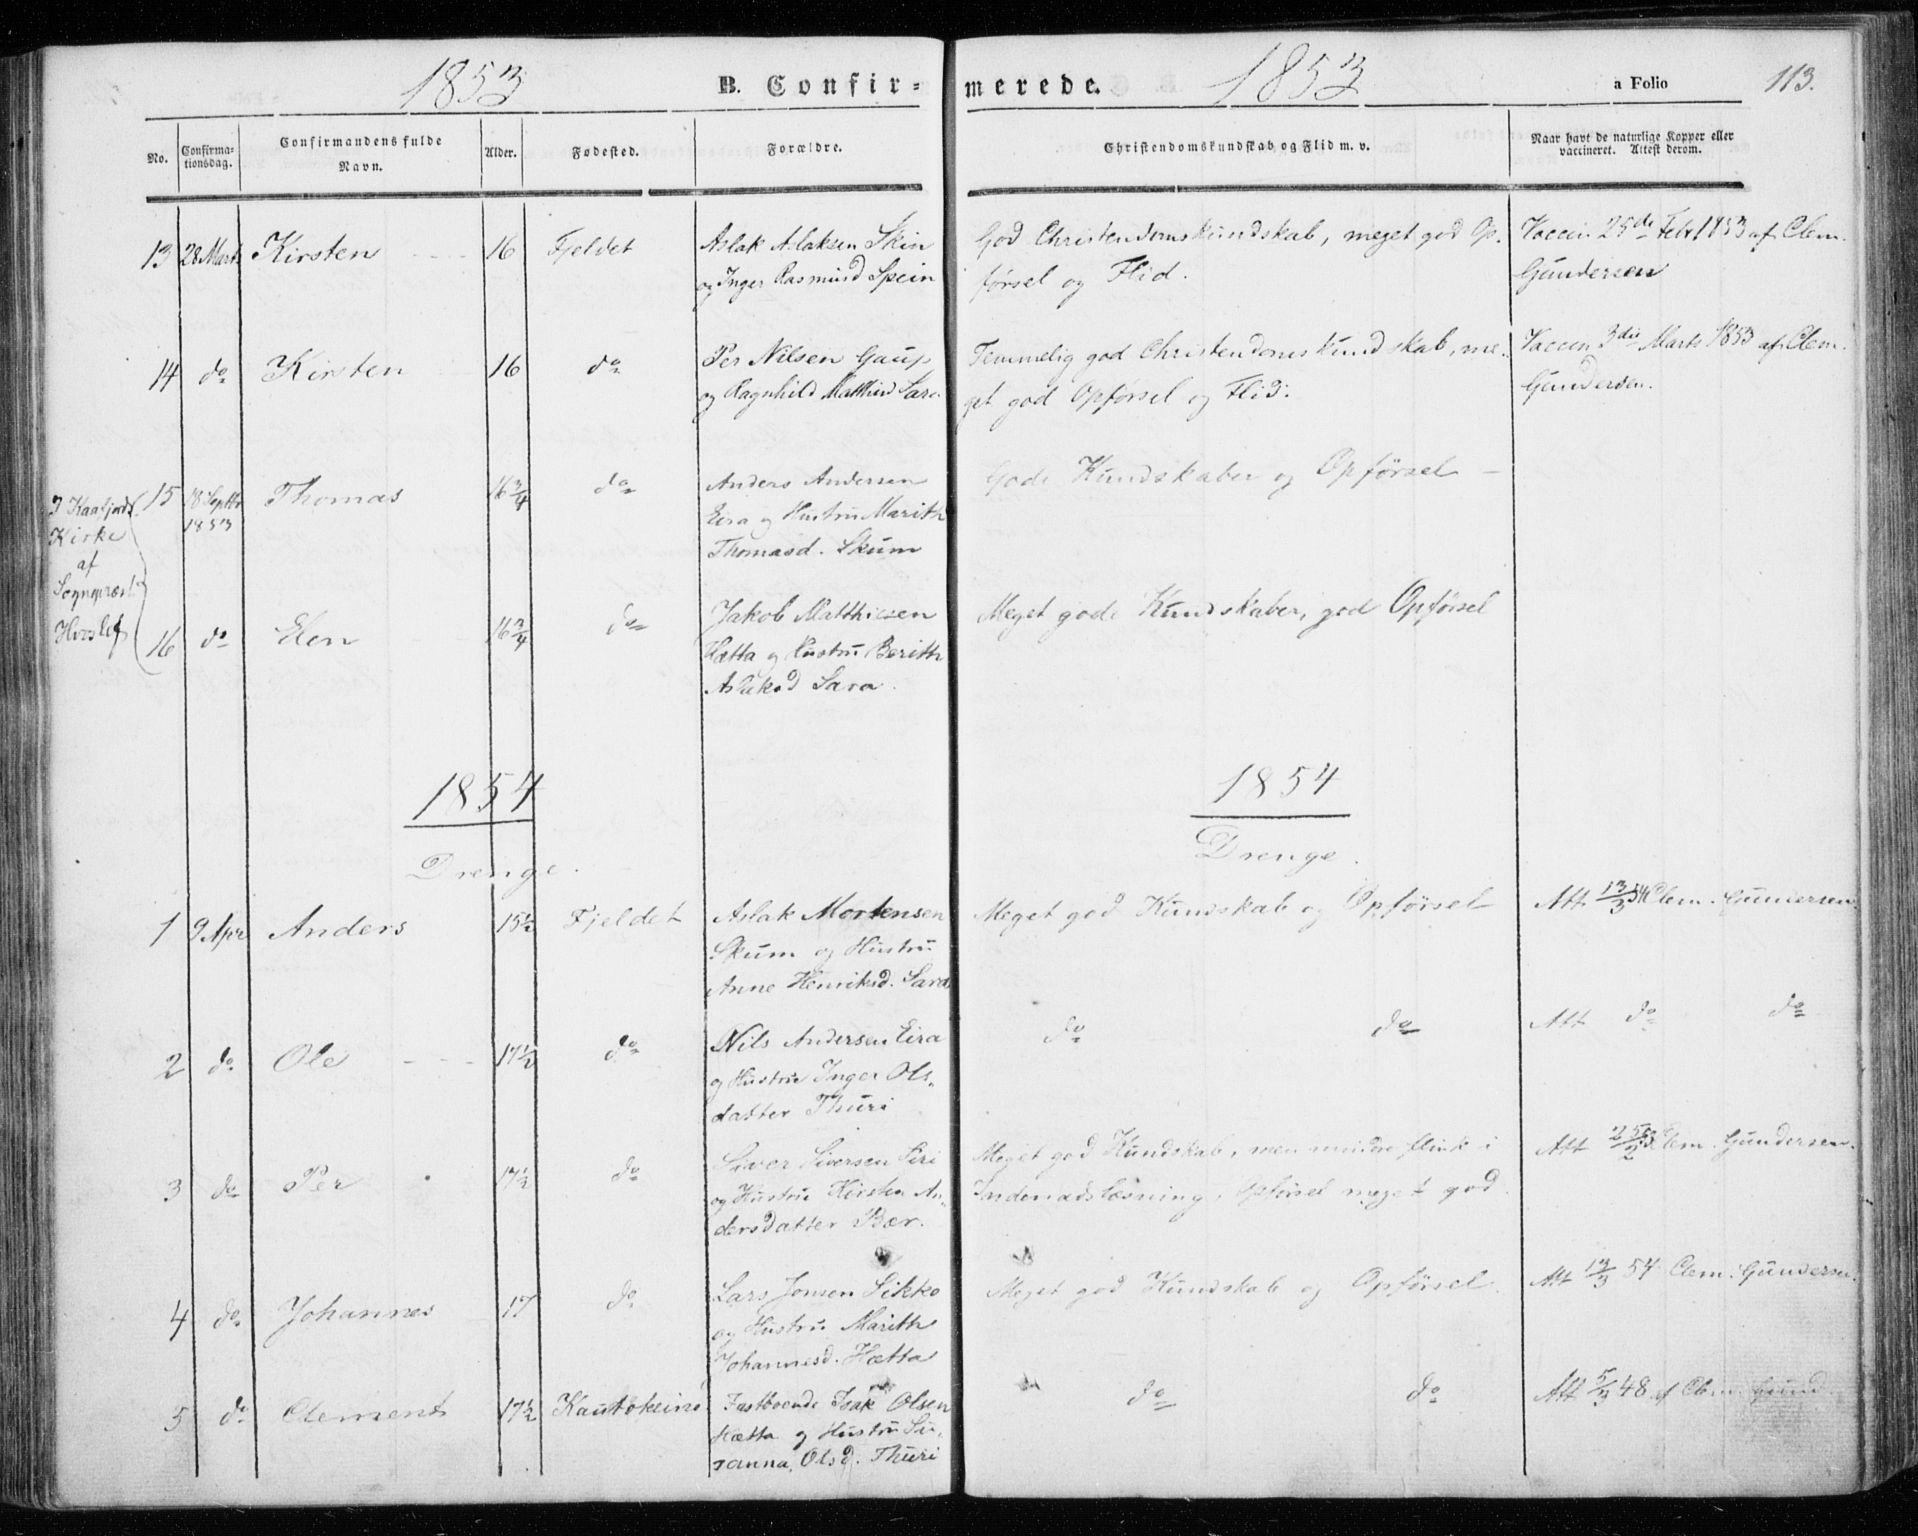 1853 B. Confir- merede. 1853 a Folio 113.
No. Confirma-tionsdag. Confirmandens fulde Navn. Alder. Fødested. Forældre. Christendomskundskab og Flid m. v. Naar havt de naturlige Kopper eller vaccineret. Attest derom.
13 28 Marts Kirsten 16 Fjeldet Aslak Aslaksen Skin God Christendomskundskab, meget god Op- Vaccin. 25de Febr 1853 af Clem.
og Inger Rasmusd Spein førsel og Flid. Gundersen
14 do Kirsten 16 do Per Nilsen Gaup Temmelig god Christendomskundskab, me- Vaccin 3die Marts 1853 af Clem.
og Ragnhild Matthisd Sara get god Opførsel og Flid. Gundersen.
15 18 Septbr 1853 Thomas 16 3/4 do Anders Andersen Gode Kundskaber og Opførsel –
Eira og Hustru Marith
Thomasd. Skum
I Kaafjords
Kirke
af
Sognepræst
Hvoslef
16 do Elen 16 3/4 do Jakob Matthiesen Meget gode Kundskaber, god Opførsel
Hætta og Hustru Berith
Aslaksd Sara.
1854 1854
Drenge. Drenge.
1 9 Apr Anders 15 1/2 Fjeldet Aslak Mortensen Meget god Kundskab og Opførsel Att 13/3 54 Clem. Gundersen.
Skum og Hustru
Anne Henriksd. Sara
2 do Ole 17 1/2 do Nils Andersen Eira do do Att do do
og Hustru Inger Ols-
datter Thuri
3 do Per 17 1/2 do Siver Siversen Siri Meget god Kundskab, men mindre flink i Att 25/2 53 Clem. Gundersen.
og Hustru Kirsten An- Indenadslæsning, Opførsel meget god.
dersdatter Bær.
4 do Johannes 17 do Lars Jonsen Sikko Meget god Kundskab og Opførsel. Att 13/3 54 Clem. Gundersen.
og Hustru Marith
Johannesd. Hætta
5 do Clement 17 1/2 Kautokeino Fastboende Isak Olsen do do Att 5/3 48 af Clem. Gund.
Hætta og Hustru Su-
sanna Olsd. Thuri